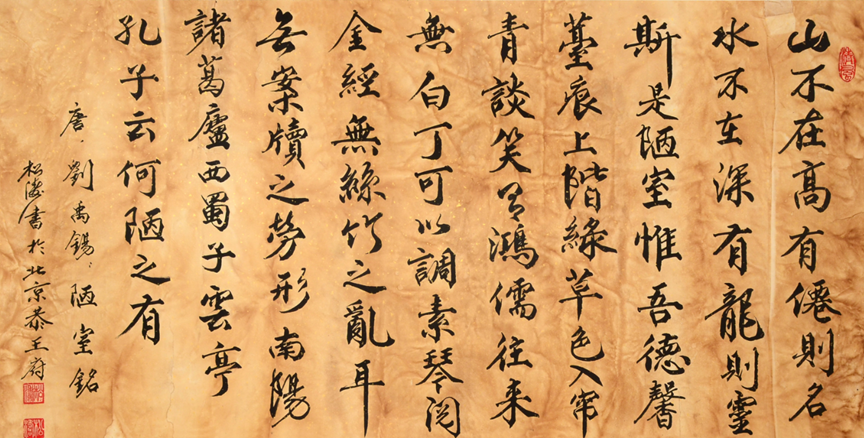 山不在高有僊則名
水不在深有龍則靈
斯是陋室惟吾德馨
薹痕上階綠草色入帘
青談笑有鴻儒往来
無白丁可以調素琴閱
金經無絲竹之亂耳
無案牘之勞形南陽
諸葛廬西蜀子雲亭
孔子云何陋之有
唐·劉禹錫·陋室銘
松濤書於北京恭王府